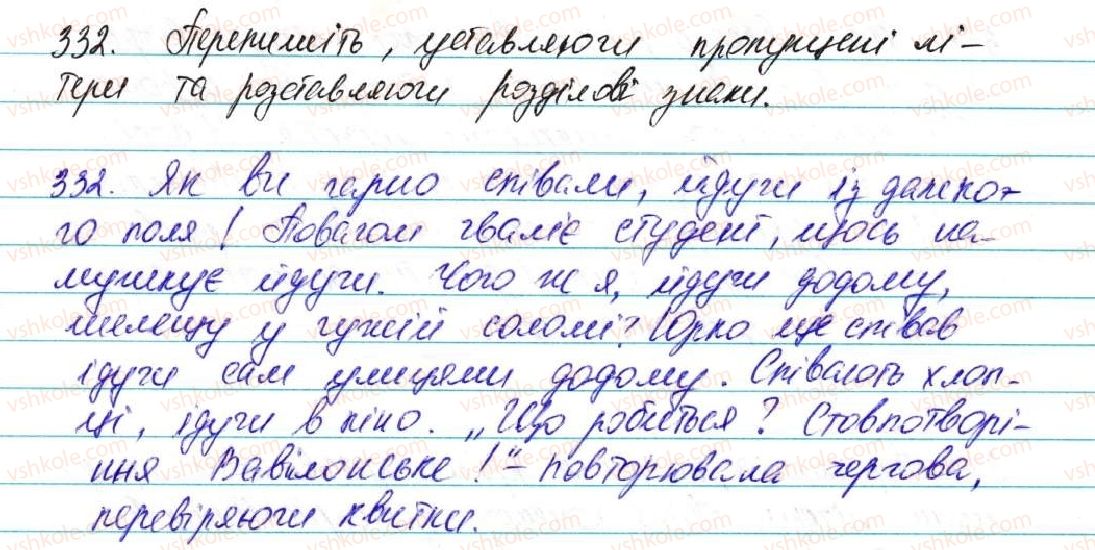 332. Перепишіть, уставляючи пропущені лі-
тери та розставляючи розділові знаки.
332. Як ви гарно співали, йдучи із далеко-
го поля! Повагом чвалає студент, щось на-
мугикує йдучи. Чого ж я, йдучи додому,
шелещу у чужій соломі? Юрко ще співав
ідучи сам улицями додому. Співають хлоп-
ці, ідучи в кіно. „Що робиться? Стовпотворі-
ння Вавілонське!" – повторювала чергова,
перевіряючи квитки.